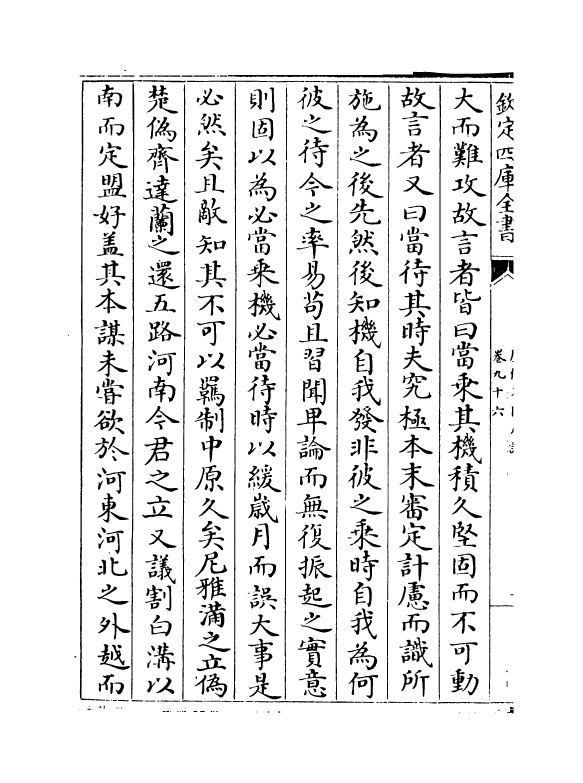 欽定四庫全書
卷九十六
大而難攻故言者皆曰當乘其機積久堅固而不可動
故言者又曰當待其時夫究極本末審定計慮而識所
施為之後先然後知機自我發非彼之乘時自我為何
彼之待今之率易苟且習聞卑論而無復振起之實意
則固以為必當乘機必當待時以緩歲月而誤大事是
必然矣且敵知其不可以羈制中原久矣尼雅滿之立偽
楚偽齊達蘭之還五路河南今君之立又議割白溝以
南而定盟好盖其本謀未嘗欲於河東河北之外越而